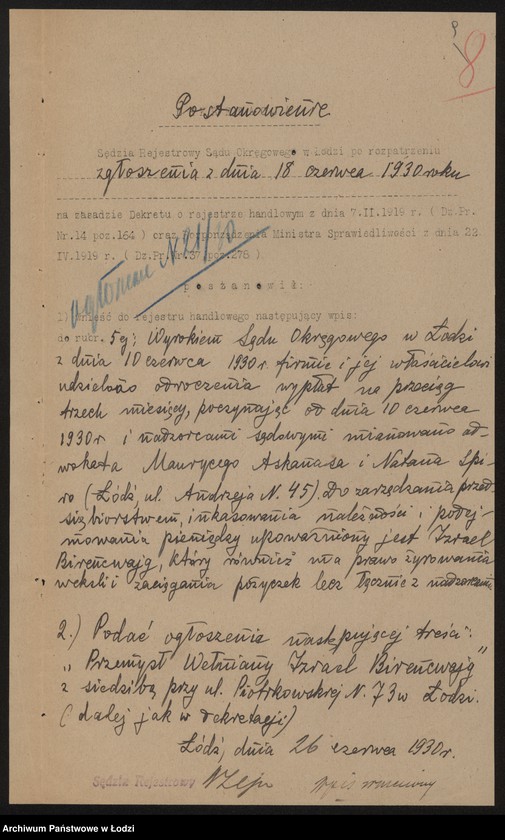 9
8
Postanowienie
Sędzia Rejestrowy Sądu Okręgowego w Łodzi po rozpatrzeniu
zgłoszenia z dnia 18 czerwca 1930 roku
na zasadzie Dekretu o rejestrze handlowym z dnia 7.II.1919 r. ( Dz.Pr.
Nr.14 poz.164 ) oraz Rozporządzenia Ministra Sprawiedliwości z dnia 22
IV.1919 r. ( Dz.Pr.Nr.37 poz.278 ).
ogłoszenie N
postanowił:
1) wnieść do rejestru handlowego następujący wpis:
do rubr. 5ej: Wyrokiem Sądu Okręgowego w Łodzi
z dnia 10 czerwca 1930 r. firmie i jej właścicielowi
udzielono odroczenia wypłat na przeciąg
trzech miesięcy, poczynając od dnia 10 czerwca
1930 r. i nadzorcami sądowymi mianowano ad-
wokata Maurycego Askanasa i Natana Spi-
ro (Łódź, ul. Andrzeja N. 45). Do zarządzania przed-
siębiorstwem, inkasowania należności i podej-
mowania pieniędzy upoważniony jest Izrael
Birencwajg, który również ma prawo żyrowania
weksli i zaciągania pożyczek lecz łącznie z nadzorcami
2.) Podać ogłoszenie następującej treści:
"Przemysł Wełniany Izrael Birencwajg"
z siedzibą przy ul. Piotrkowskiej N. 73 w Łodzi.
(dalej jak w dekretacji)
Łódź, dnia 26 czerwca 1930 r.
Sędzia Rejestrowy
wpis
Archiwum Państwowe w Łodzi